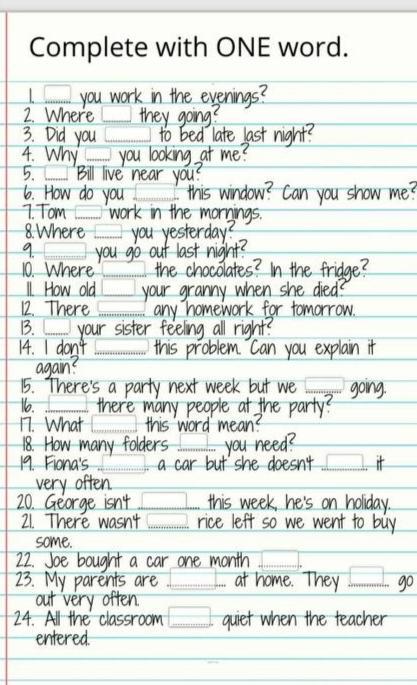 Complete with ONE word.
1. ........ you work in the evenings?
2. Where ........ they going?
3. Did you ........ to bed late last night?
4. Why ........ you looking at me?
5. ........ Bill live near you?
6. How do you ........ this window? Can you show me?
7. Tom ........ work in the mornings.
8. Where ........ you yesterday?
9. ........ you go out last night?
10. Where ........ the chocolates? In the fridge?
11. How old ........ your granny when she died?
12. There ........ any homework for tomorrow.
13. ........ your sister feeling all right?
14. I don't ........ this problem. Can you explain it
again?
15. There's a party next week but we ........ going.
16. ........ there many people at the party?
17. What ........ this word mean?
18. How many folders ........ you need?
19. Fiona's ........ a car but she doesn't ........ it
very often.
20. George isn't ........ this week, he's on holiday.
21. There wasn't ........ rice left so we went to buy
some.
22. Joe bought a car one month .........
23. My parents are ........ at home. They ........ go
out very often.
24. All the classroom ........ quiet when the teacher
entered.